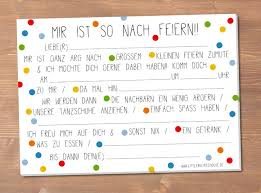 MIR IST SO NACH FEIERN!!
LIEBE(R)
MIR IST GANZ ARG NACH GROSSEM KLEINEN FEIERN ZUMUTE
& ICH MÖCHTE DICH GERNE DABEI HABEN! KOMM DOCH
AM UM
ZU MIR / DA MAL HIN
WIR WERDEN DANN DIE NACHBARN EIN WENIG ÄRGERN /
UNSERE TANZSCHUHE ANZIEHEN / EINFACH SPASS HABEN /
ICH FREU MICH AUF DICH & SONST NIX / EIN GETRÄNK /
WAS ZU ESSEN /
BIS DANN DEINE(R)